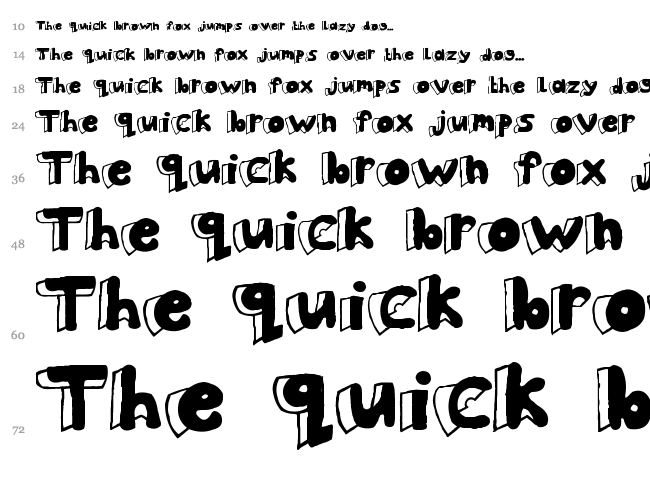 10 The quick brown fox jumps over the lazy dog...
14 The quick brown fox jumps over the lazy dog...
18 The quick brown fox jumps over the lazy dog
24 The quick brown fox jumps over
36 The quick brown fox j
48 The quick brown
60 The quick bro
72 The quick b